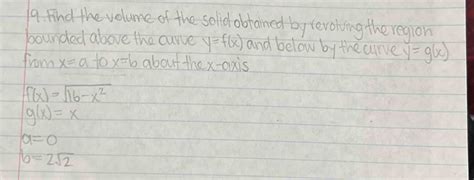 19. Find the volume of the solid obtained by revolving the region
bounded above the curve y=f(x) and below by the curve y=g(x)
from x=a to x=b about the x-axis
f(x)=√16-x²
g(x)=x
a=0
b=2√2